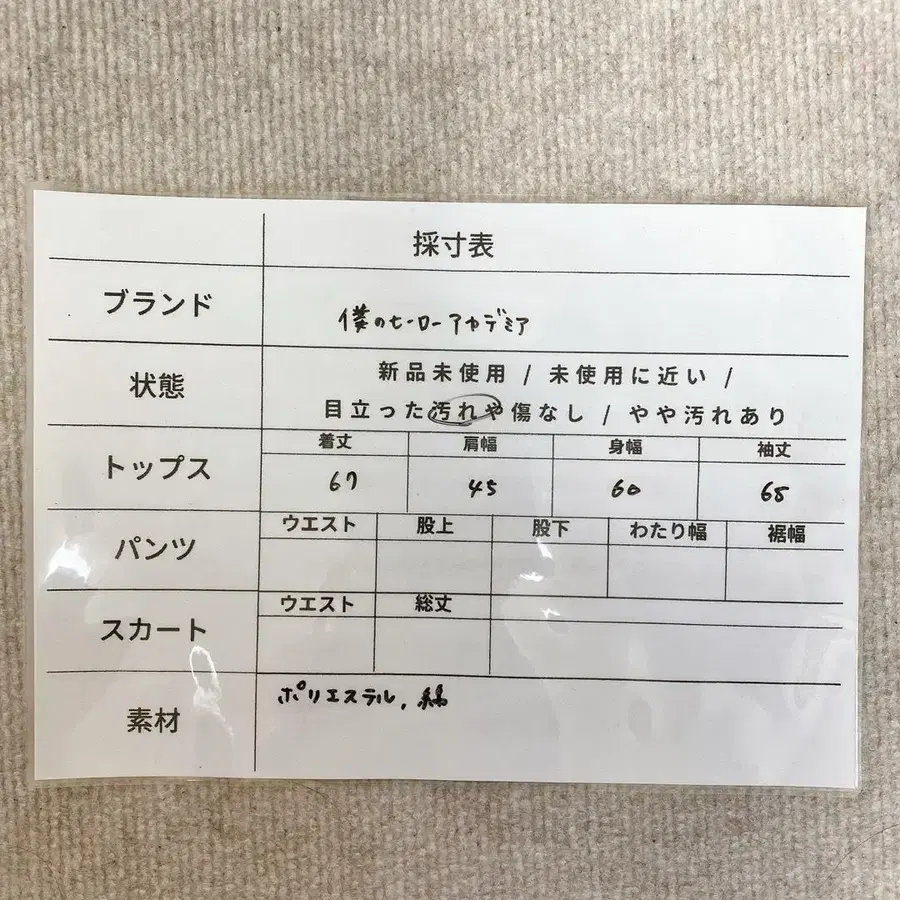 採寸表
ブランド
僕のヒーローアカデミア
状態
新品未使用 / 未使用に近い /
目立った汚れや傷なし / やや汚れあり
トップス
着丈 肩幅 身幅 袖丈
67 45 60 65
パンツ
ウエスト 股上 股下 わたり幅 裾幅
スカート
ウエスト 総丈
素材
ポリエステル, 綿